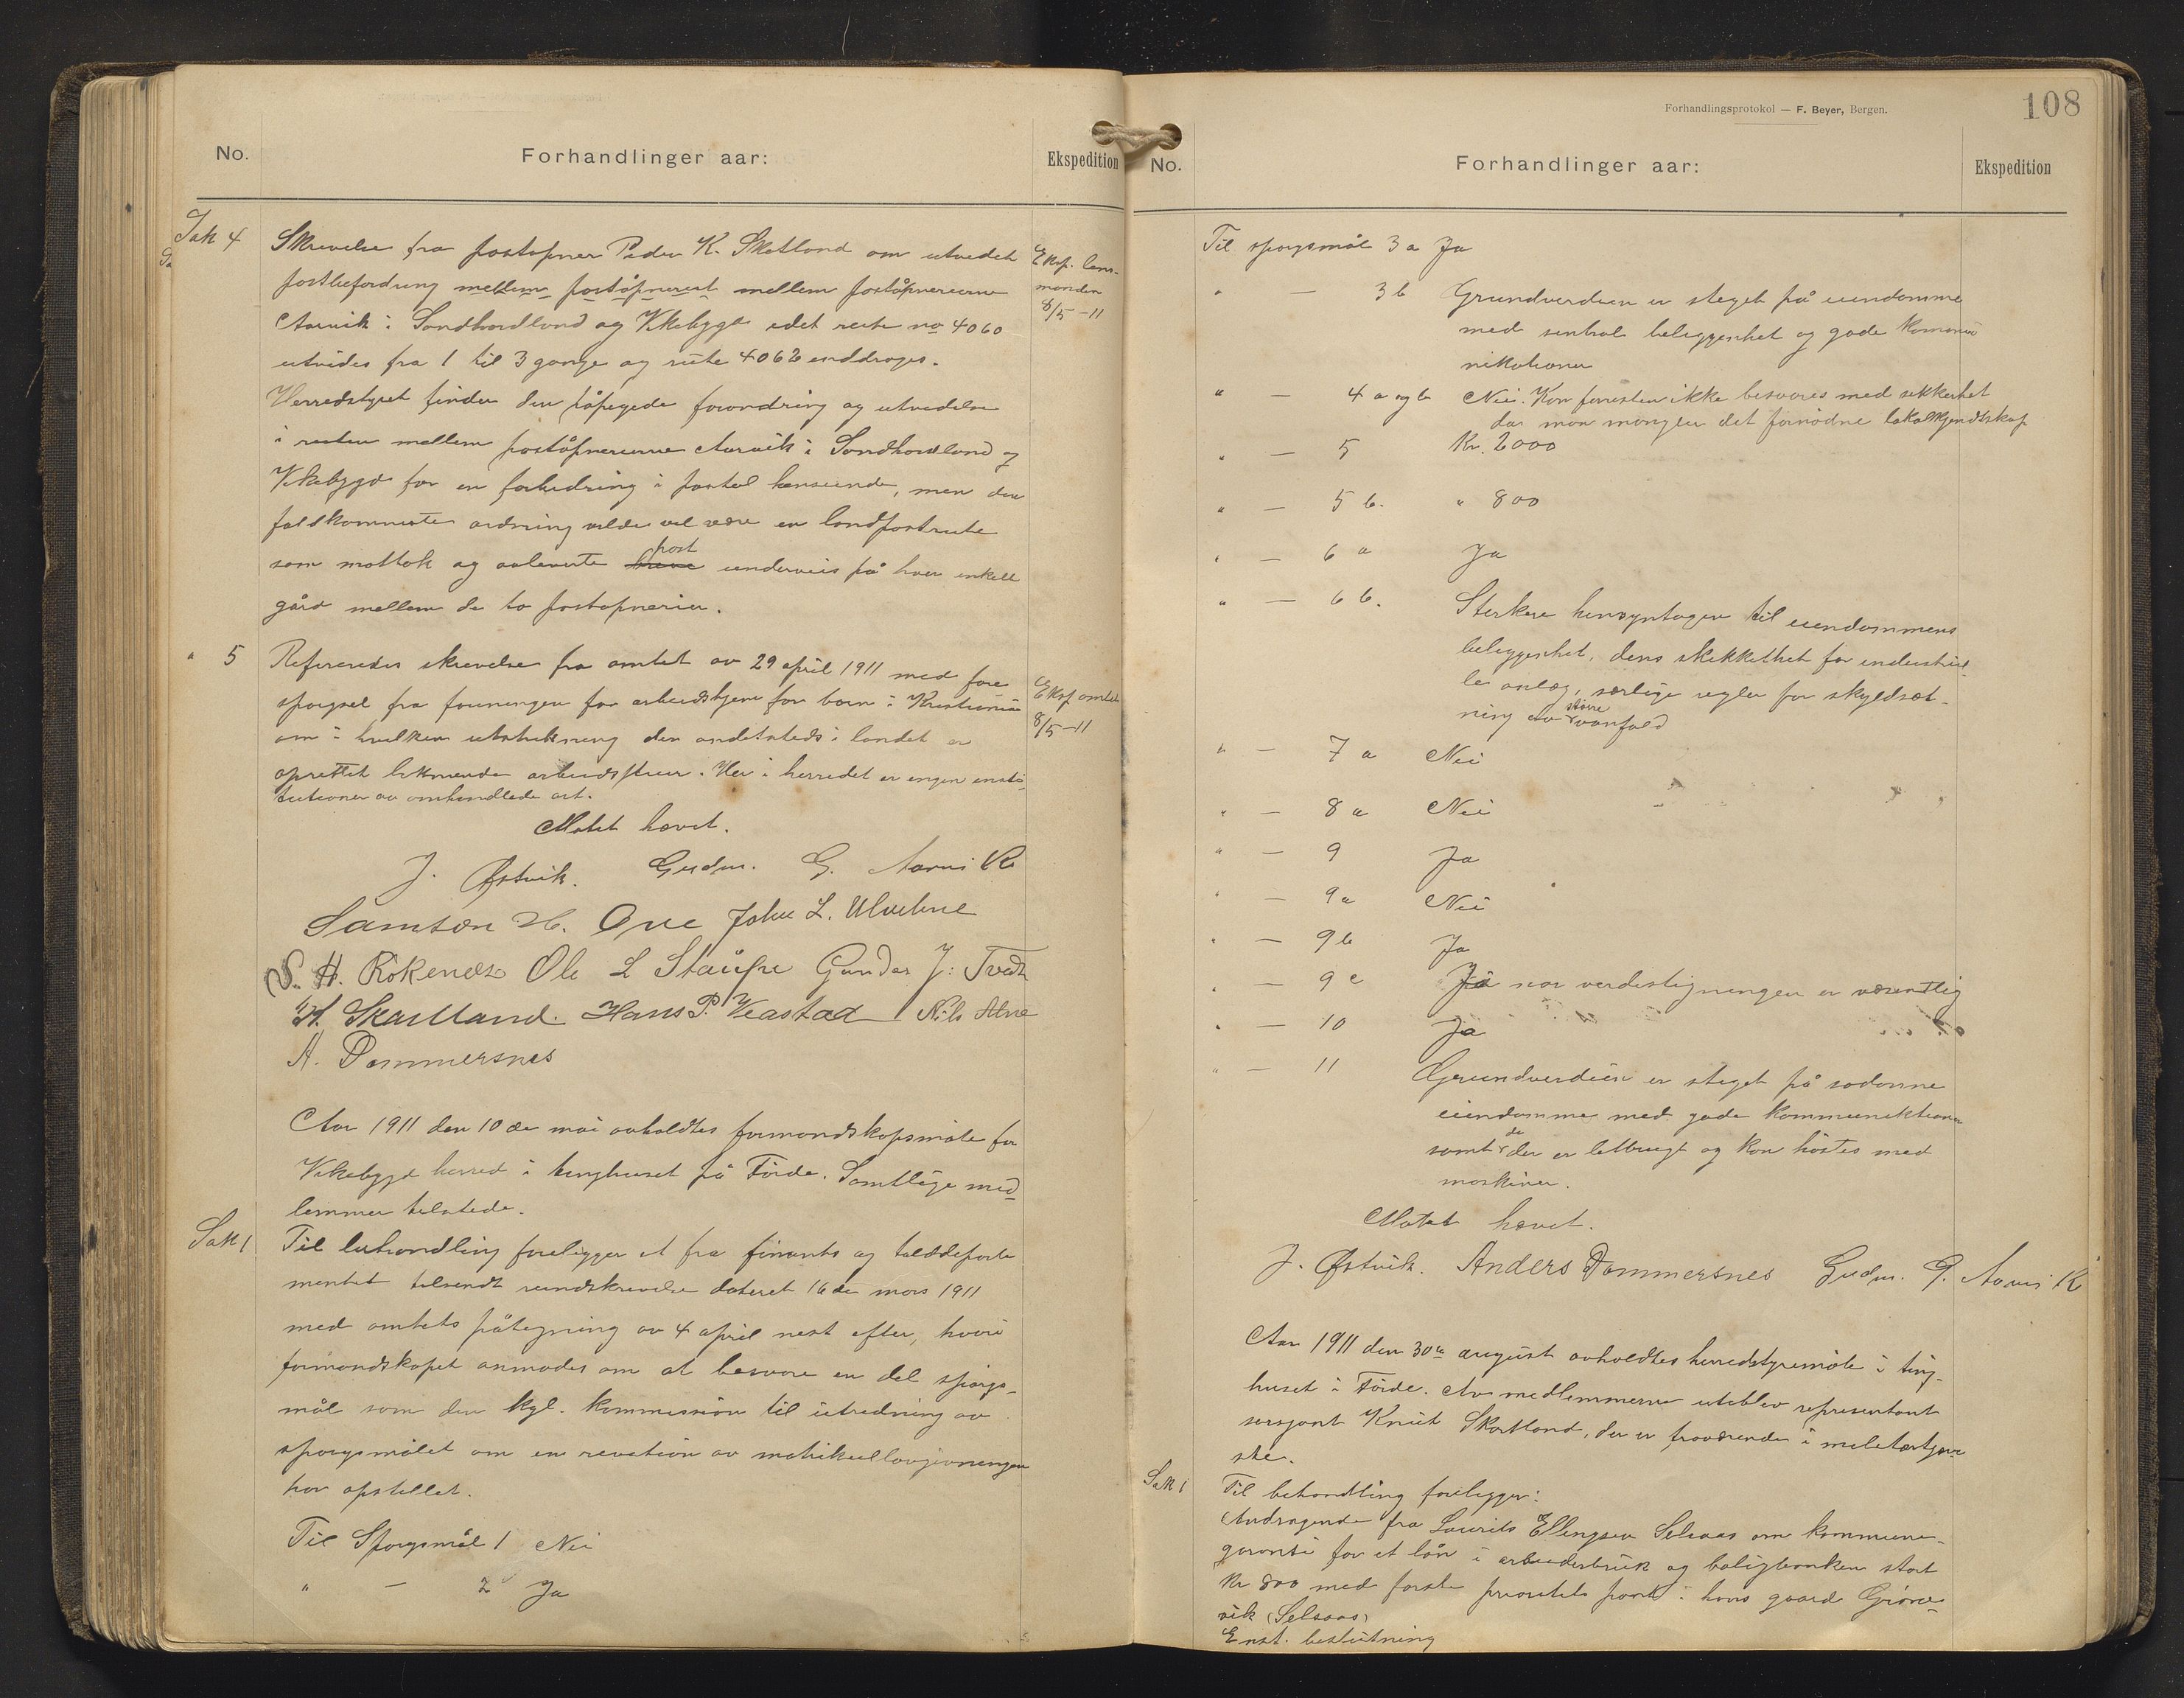 No.
Forhandlinger aar:
Ekspedition
Sak 4
Skrivelse fra postopner Peder K. Skotland om utvedet
Eksp. lens-
postbefordring mellem postopneriet mellem poståpnererne
manden
Aarvik i Sondhordland og Vikebygd idet reite no 4060
8/5 -11
utvides fra 1 til 3 gange og rute 4062 inddrages.
Herredstyret finder den påpegede forandring og utvidelse
i ruten mellem poståpnererne Aarvik i Sondhordland og
Vikebygd for en forbedring i postal henseende, men den
fuldkomneste ordning vilde vel være en landpostrute
post
som mottok og avleverte breve underveis på hver enkelt
gård mellem de to postopnerier.
" 5
Refereredes skrivelse fra amtet av 29 april 1911 med fore
Eksp amtet
sporgsel fra foreningen for arbeidshjem for born i Kristiania
8/5 -11
om i hvilken utstrekning der andetsteds i landet er
oprettet liknende arbeidsstuer. Her i herredet er ingen insti-
tutioner av omhandlede art.
Møtet hævet.
J. Østvik. Gudm. G. Aarvik
Samson H. Ove John L. Alvehne
S. H. Rökenes Ole L Støupe Gunder J. Tvedt
H. Skartland. Hans P. Veastad Nils Alne
A. Dommersnes
Aar 1911 den 10de mai avholdtes formandskapsmøte for
Vikebygd herred i tinghuset på Førde. Samtlige med-
lemmer tilstede.
Sak 1
Til behandling foreligger et fra finants og tolddeparte
mentet tilsendt rundskrivelse dateret 16de mars 1911
med amtets påtegning av 4 april nest efter, hvori
formandskapet anmodes om at besvare en del spørgs-
mål som den kgl. kommission til utredning av
spørgsmålet om en revetion av matrikellovgivningen
har opstillet.
Til Spørgsmål 1 Nei
" — 2 Ja
Forhandlingsprotokol — F. Beyer, Bergen.
108
No.
Forhandlinger aar:
Ekspedition
Til spørgsmål 3 a Ja
" — 3 b Grundverdien er steget på eiendomme
med sentral beliggenhet og gode komonu
nikationer
" — 4 a og b Nei. Kan forresten ikke besvares med sikkerhet
da man mangler det fornødne lokalkjendskap
" — 5 Kr. 2000
" — 5 b. " 800
" — 6 a Ja
" — 6 b. Sterkere hensyntagen til eiendommens
beliggenhet, dens skikkethet for industriel
le anlæg, særlige regler for skyldsæt-
større
ning av vanfald
" — 7 a Nei
" — 8 a Nei
" — 9 Ja
" — 9a Nei
" — 9 b Ja
" — 9 c Ja nor verdistigningen er væsentlig
" — 10 Ja
" — 11 Grundverdien er steget på sodanne
eiendomme med gode kommuniktioner
de
samt der er letbrugt og kan höstes med
maskiner.
Møtet hævet.
J. Østvik. Anders Dommersnes Gudm. G. Aarvik
Aar 1911 den 30te august avholdtes herredstyremøte i ting-
huset i Förde. Av medlemmerne uteblev representant
sersjant Knut Skartland, der er fraværende i militærtjene
ste.
Sak 1
Til behandling foreligger:
Andragende fra Laurits Ellingsen Selsaas om kommune-
garanti for et lån i arbeiderbruk og boligbanken stort
kr 800 med første prioritets pant i hans gaard Grøne-
vik (Selsaas)
Enst. beslutning